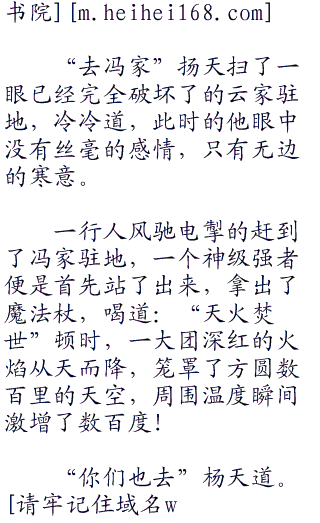 书院][m.heihei168.com]
“去冯家”扬天扫了一
眼已经完全破坏了的云家驻
地，冷冷道，此时的他眼中
没有丝毫的感情，只有无边
的寒意。
一行人风驰电掣的赶到
了冯家驻地，一个神级强者
便是首先站了出来，拿出了
魔法杖，喝道：“天火焚
世”顿时，一大团深红的火
焰从天而降，笼罩了方圆数
百里的天空，周围温度瞬间
激增了数百度！
“你们也去”杨天道。
[请牢记住域名w